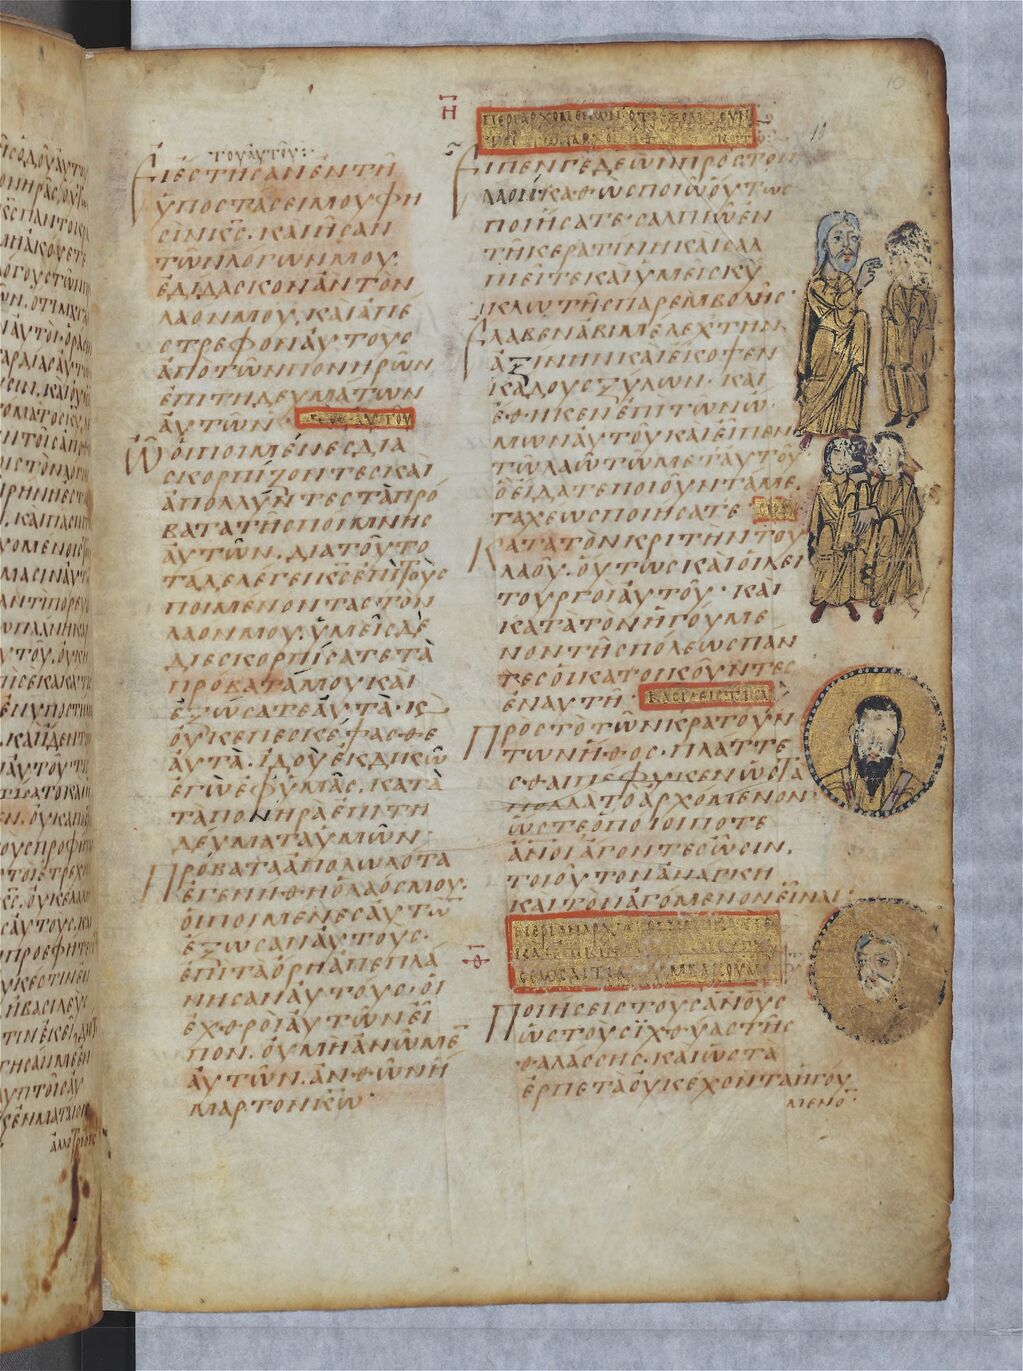 τοῦ αὐτοῦ:
Εἰ ἔστησαν ἐν τῇ
ὑποστάσει μου φη
σὶν κ̅ς̅. καὶ ἤκουσαν
τῶν λόγων μου.
ἐδίδασκον ἂν τὸν
λαόν μου, καὶ ἀπέ
στρεφον αὐτοὺς
ἀπὸ τῶν πονηρῶν
ἐπιτηδευμάτων
αὐτῶν·
Ὢ οἱ ποιμένες δια
σκορπίζοντες καὶ
ἀπολλῦντες τὰ πρό
βατα τῆς ποίμνης
αὐτῶν. διὰ τοῦτο
τάδε λέγει κ̅ς̅ ἐπὶ τοὺς
ποιμένοντας τὸν
λαόν μου. ὑμεῖς δὲ
διεσκορπίσατε τὰ
πρόβατά μου καὶ
ἐξώσατε αὐτὰ. κ̣
οὐκ ἐπεσκέψασθε
αὐτὰ. ἰδοὺ ἐκδικῶ
ἐγὼ ἐφ᾽ ὑμᾶς, κατὰ
τὰ πονηρὰ ἐπιτη
δεύματα ὑμῶν·
Πρόβατα ἀπολωλότα
ἐγενήθη ὁ λαός μου.
οἱ ποιμένες αὐτῶν
ἔξωσαν αὐτούς.
ἐπὶ τὰ ὄρη ἀπεπλά
νησαν αὐτούς. οἱ
ἐχθροὶ αὐτῶν εἶ
πον. οὐ μὴ ἀνῶμεν
αὐτῶν. ἀνθ᾽ ὧν ἥ
μαρτον κ̅ω̅·
Η
Εἶπεν γεδεὼν πρὸς τὸν
λαόν· καθὼς ποιῶ οὕτως
ποιήσατε· σαλπιῶ ἐν
τῇ κερατίνῃ καὶ σαλ
πιεῖτε καὶ ὑμεῖς κύ
κλῳ τῆς παρεμβολῆς·
Ἔλαβεν ἀβιμέλεχ τὴν
ἀξίνην καὶ ἔκοψεν
κλάδους ξύλων· καὶ
ἔθηκεν ἐπὶ τῶν ὤ
μων αὐτοῦ καὶ εἶπεν
τῷ λαῷ τῷ μετ᾽ αὐτοῦ
ὃ εἴδατε ποιοῦντά με.
ταχέως ποιήσατε
Κατὰ τὸν κριτὴν τοῦ
λαοῦ. οὕτως καὶ οἱ λει
τουργοὶ αὐτοῦ· καὶ
κατὰ τὸν ἡγούμε
νον τῆς πόλεως πάν
τες οἱ κατοικοῦντες
ἐν αὐτῇ·
Πρὸς τὸ τῶν κρατούν
των ἦθος· πλάττε
σθαι πέφυκεν ὡς τὰ
πολλὰ τὸ ἀρχόμενον·
ὥστε ὁποῖοί ποτε
ἂν οἱ ἄγοντες ὦσιν.
τοιοῦτον ἀνάγκη
καὶ τὸν ἀγόμενον εἶναι:
Θ
Ποιήσεις τοὺς ἀ̅ν̅ους
ὡς τοὺς ἰχθύας τῆς
θαλάσσης. καὶ ὡς τὰ
ἑρπετὰ οὐκ ἔχοντα ἡγού
μενον